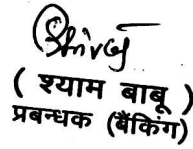 ( श्याम बाबू )
प्रबन्धक (बैंकिंग)